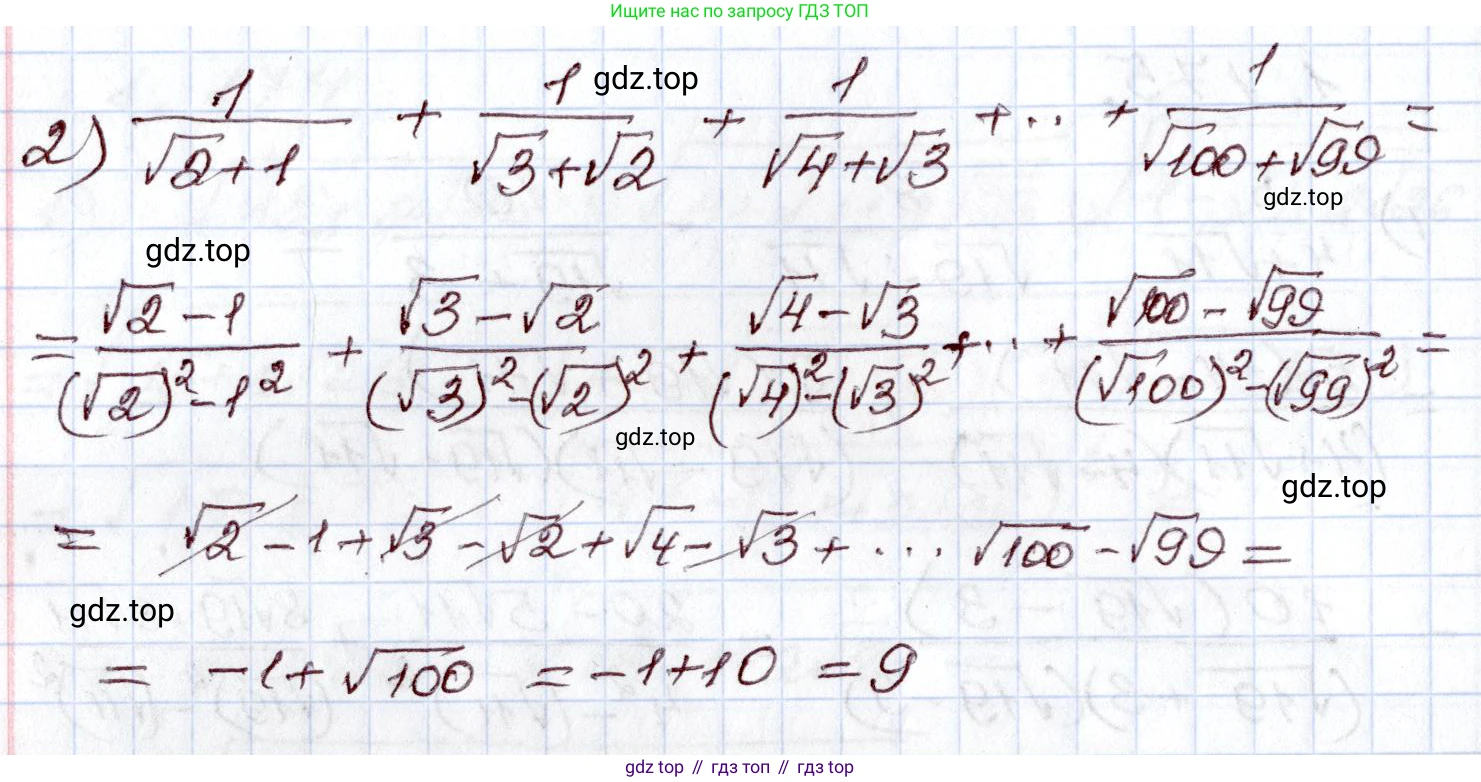 Ищите нас по запросу ГДЗ ТОП
2) 1/(√2+1) + 1/(√3+√2) + 1/(√4+√3) + ... + 1/(√100+√99) =
gdz.top
gdz.top
gdz.top
= (√2-1)/((√2)²-1²) + (√3-√2)/((√3)²-(√2)²) + (√4-√3)/((√4)²-(√3)²) + ... + (√100-√99)/((√100)²-(√99)²) =
gdz.top
gdz.top
= √2-1+√3-√2+√4-√3+... √100-√99=
gdz.top
= -1+√100 = -1+10 = 9
gdz top // гдз топ // гдз top